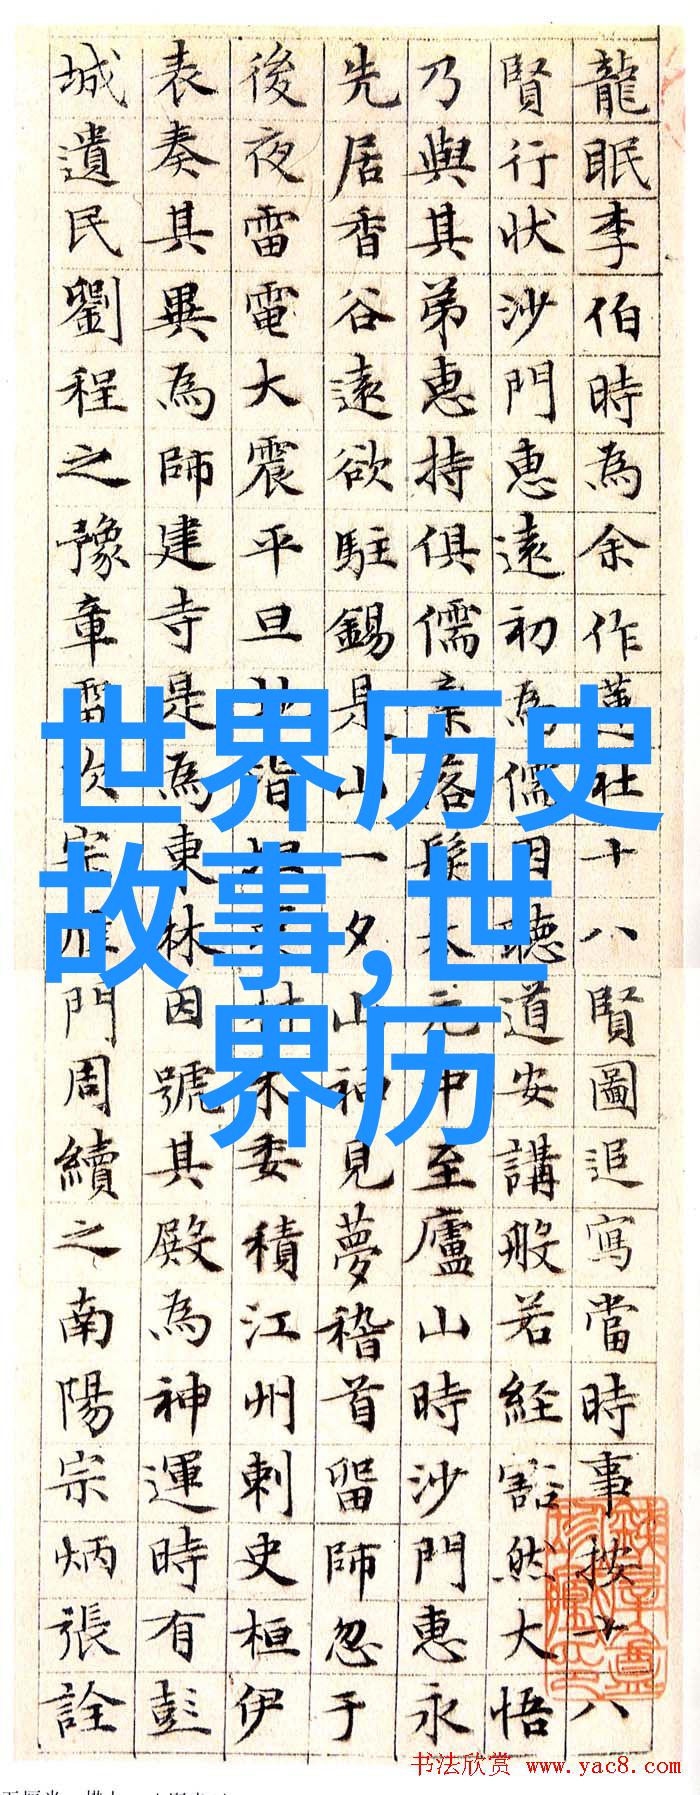 龍眠李伯時為余作蓮社十八賢圖追寫當時事按十八
賢行狀沙門惠遠初為儒因聽道安講般若経豁然大悟
乃與其弟惠持俱儒落髮太元中至廬山時沙門惠永
先居香谷遠欲駐錫是山一夕山神見夢稽首留師忽于
後夜雷電大震平旦地皆委積江州刺史桓伊
表奏其異為師建寺是為東林因號其殿為神運時有彭
城遺民劉程之豫章雷次宗雁門周續之南陽宗炳張詮
世界历史
故事,世
界历
书法欣赏 www.yac8.com